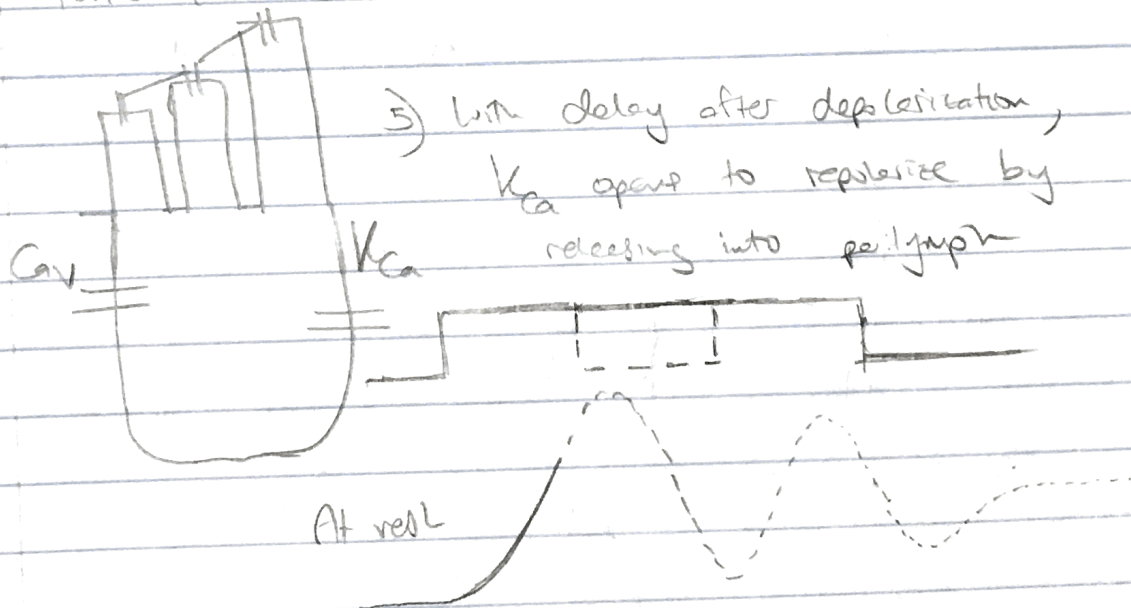 5) With delay after depolarization,
K_Ca opens to repolarize by
releasing into perilymph
Ca_V
K_Ca
At rest